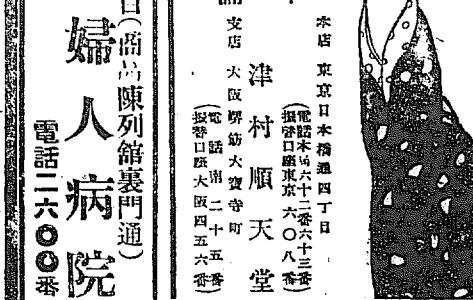 本店 東京日本橋通四丁目
(電話本局六十二番六十三番
振替口座東京 六〇八番)
津村順天堂
支店 大阪堺筋大寶寺町
(電話南二十五番
振替口座大阪四五六番)
陳列館裏門通)
婦人病院
電話二六〇〇番